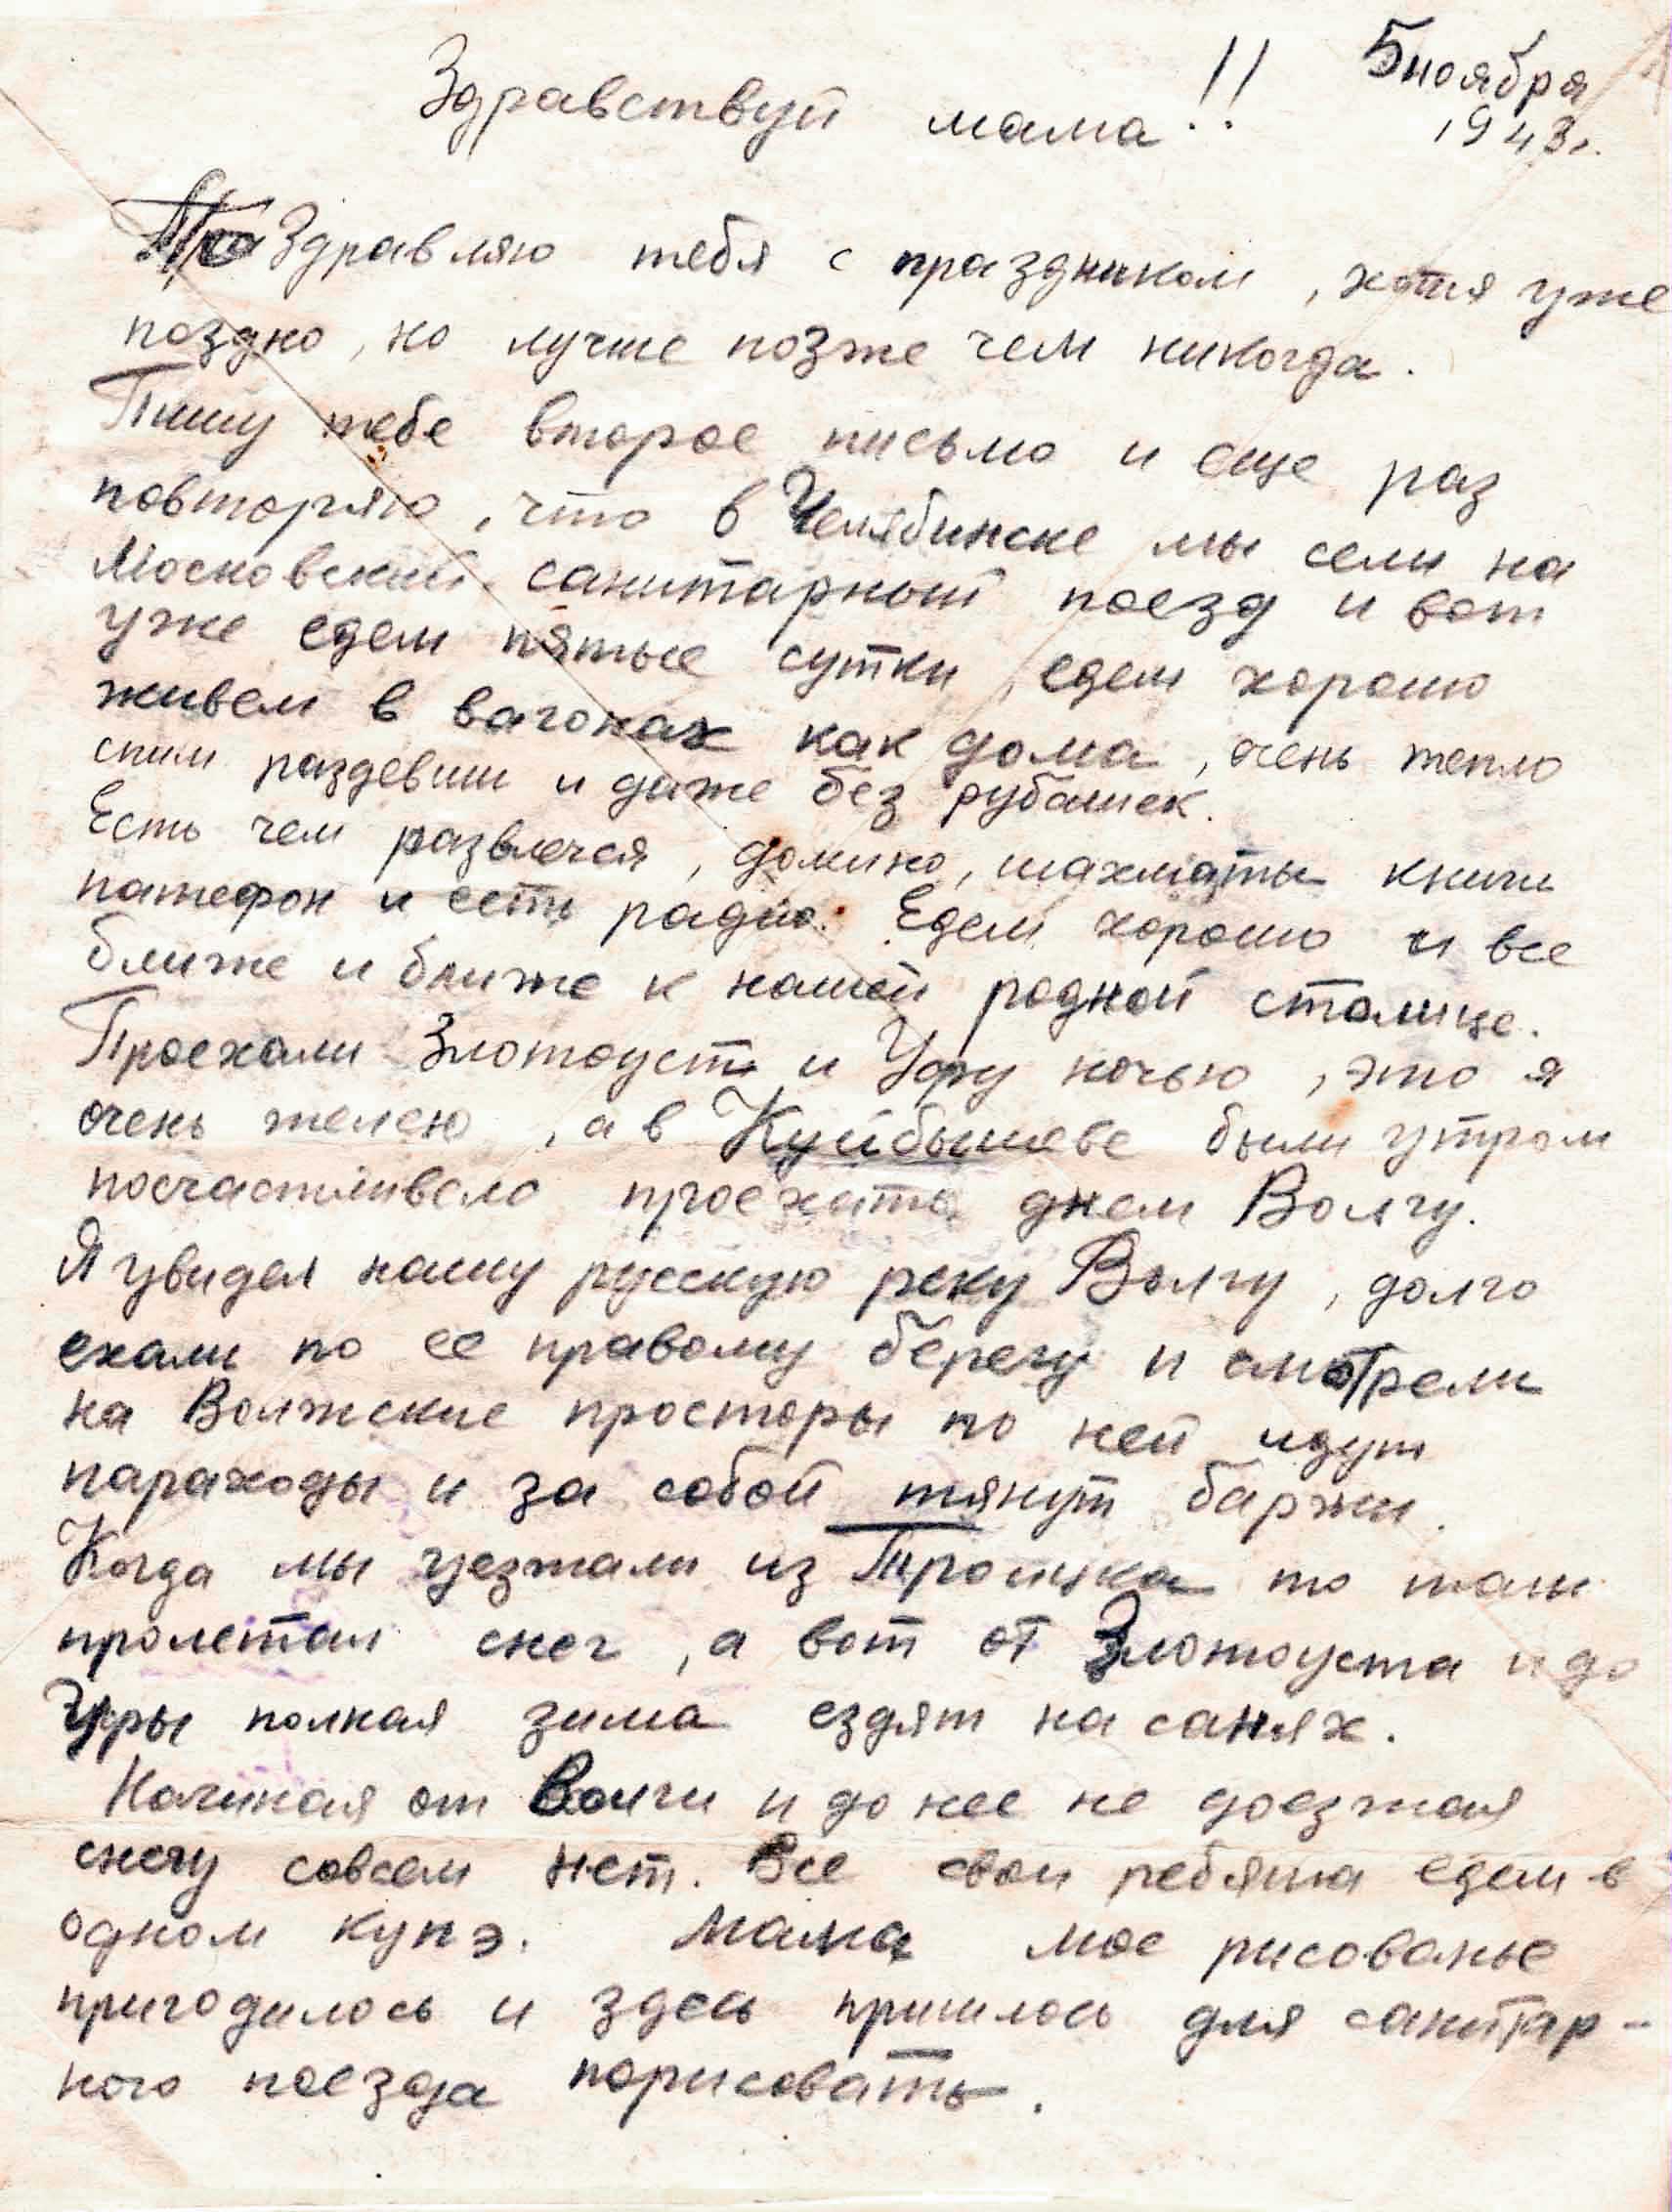 5 ноября
1943 г.
Здравствуй мама!!
Поздравляю тебя с праздником, хотя уже
поздно, но лучше позже чем никогда.
Пишу тебе второе письмо и еще раз
повторяю, что в Челябинске мы сели на
Московский санитарный поезд и вот
уже едем пятые сутки, едем хорошо
живем в вагонах как дома, очень тепло
спим раздевши и даже без рубашек.
Есть чем развлечся, домино, шахматы книги
патефон и есть радио. Едем хорошо и все
ближе и ближе к нашей родной столице.
Проехали Златоуст и Уфу ночью, это я
очень желею, а в Куйбышеве были утром
посчастливело проехать днем Волгу.
Я увидел нашу русскую реку Волгу, долго
ехали по ее правому берегу и смотрели
на Волжские просторы по ней идут
параходы и за собой тянут баржи.
Когда мы уезжали из Троицка то там
пролетал снег, а вот от Златоуста и до
Уфы полная зима ездят на санях.
Начиная от Волги и до нее не доезжая
снегу совсем нет. Все свои ребята едем в
одном купэ. Мама мое рисованье
пригодилось и здесь пришлось для санитар-
ного поезда порисовать.